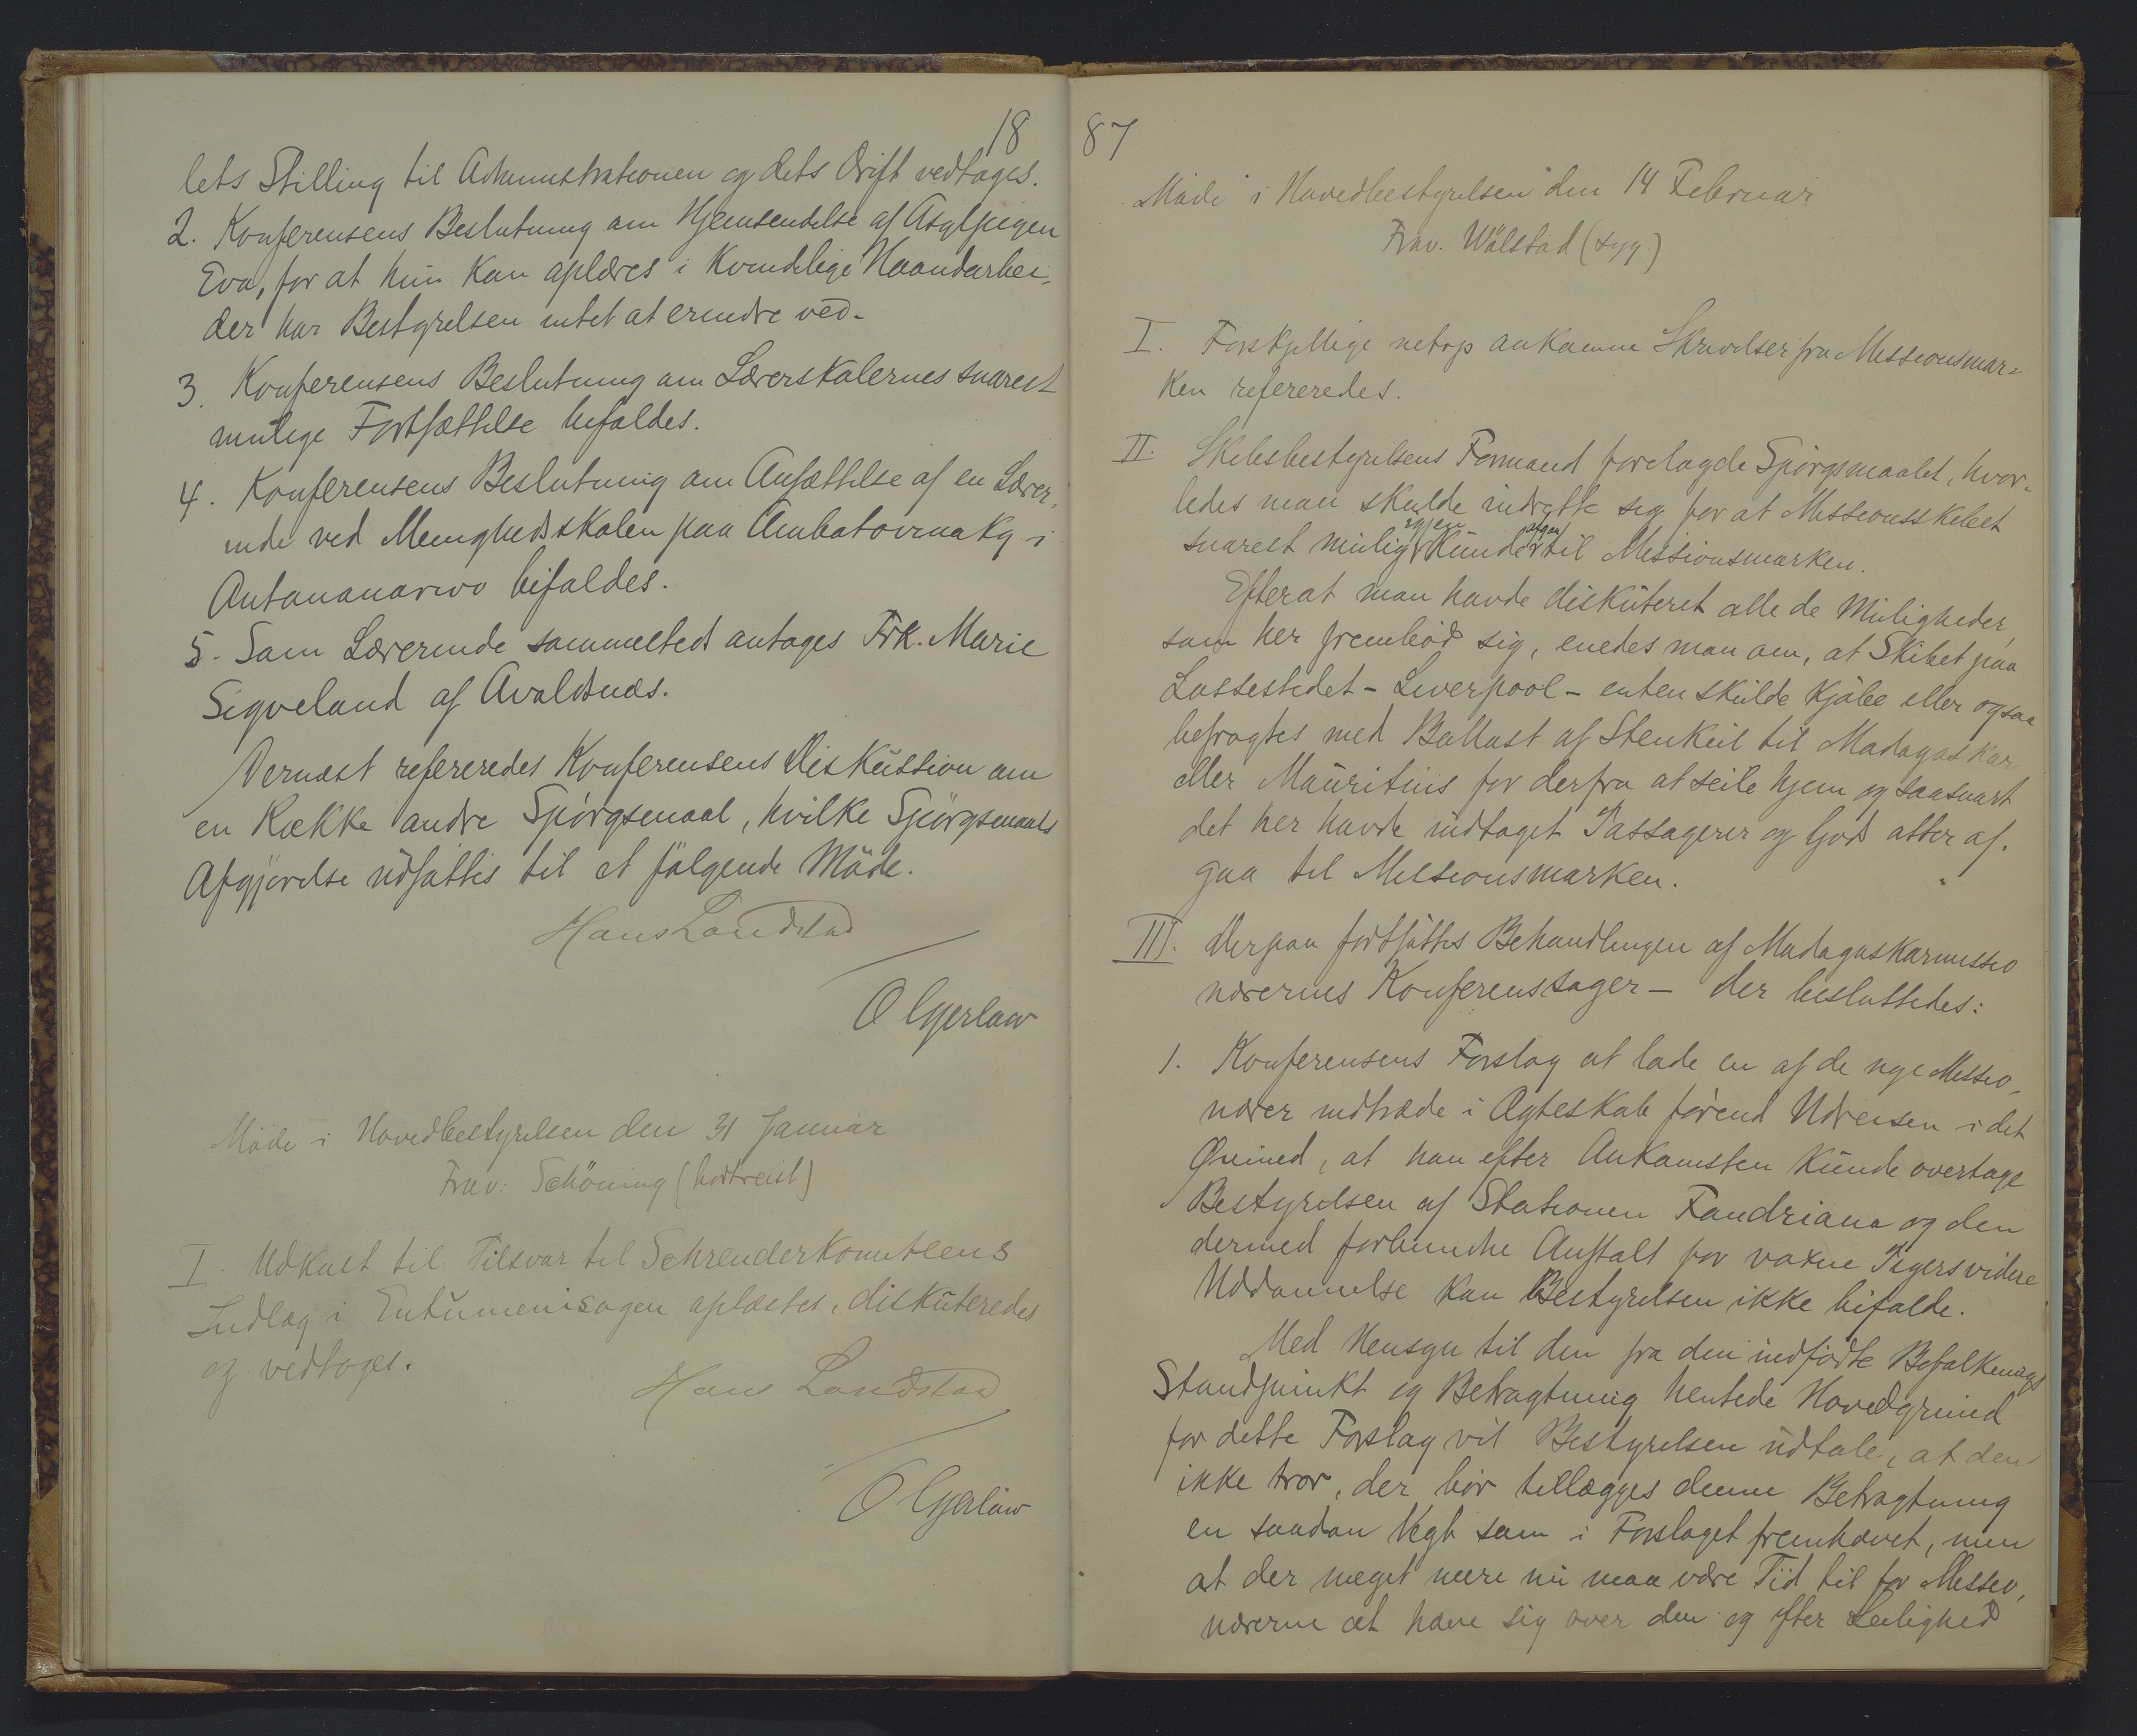 18
lets Stilling til Administrationen og dets Drift vedtages.
2. Konferensens Beslutning om Hjemsendelse af Asylpigen
Eva, for at hun kan oplæres i kvindelige Haandarbei-
der har Bestyrelsen intet at erindre ved.
3. Konferensens Beslutning om Lærerskolernes snarest
mulige Fortsættelse bifaldes.
4. Konferensens Beslutning om Ansættelse af en Lærer-
inde ved Menighedsskolen paa Ambatovinaky i
Antananarivo bifaldes.
5. Som Lærerinde sammesteds antages Frk. Marie
Sigveland af Avaldsnæs.
Dernæst refereredes Konferensens Diskussion om
en Række andre Spörgsmaal, hvilke Spörgsmaals
Afgjörelse udsattes til et fölgende Möde.
Hans Landstad
O Gjerløw
Möde i Hovedbestyrelsen den 31 Januar
Frav: Schöning (bortreist)
I. Udkast til Tilsvar til Schreuderkomiteens
Indlæg i Entumenisagen oplæstes, diskuteredes
og vedtoges.
Hans Landstad
O Gjerløw
87
Möde i Hovedbestyrelsen den 14 Februar
Frav. Wålstad (syg.)
I. Forskjellige netop ankomne Skrivelser fra Missionsmar-
ken refereredes.
II. Skibsbestyrelsens Formand forelagde Spörgsmaalet, hvor-
ledes man skulde indrette sig for at Missionsskibet
snarest mulig igjen kunde afgaa til Missionsmarken.
Efterat man havde diskuteret alle de Muligheder,
som her frembød sig, enedes man om, at Skibet paa
Lossestedet - Liverpool - enten skulde kjöbe eller ogsaa
befragtes med Ballast af Stenkul til Madagaskar
eller Mauritius for derfra at seile hjem og saasnart
det her havde indtaget Passagerer og Gods atter af-
gaa til Missionsmarken.
III. Derpaa fortsattes Behandlingen af Madagaskarmissio
nærernes Konferenssager - der besluttedes:
1. Konferensens Forslag at lade en af de nye Missio-
nærer indtræde i Ægteskab förend Udreisen i det
Öiemed, at han efter Ankomsten kunde overtage
Bestyrelsen af Stationen Fandriana og den
dermed forbundne Anstalt for voxne Pigers videre
Uddannelse kan Bestyrelsen ikke bifalde.
Med Hensyn til den fra den indfödte Befolknings
Standpunkt og Betragtning hentede Hovedgrund
for dette Forslag vil Bestyrelsen udtale, at den
ikke tror, der bör tillægges denne Betragtning
en saadan Vegt som i Forslaget fremhævet, men
at der meget mere nu maa være Tid til for Missio-
nærerne at hæve sig over den og efter Leilighed